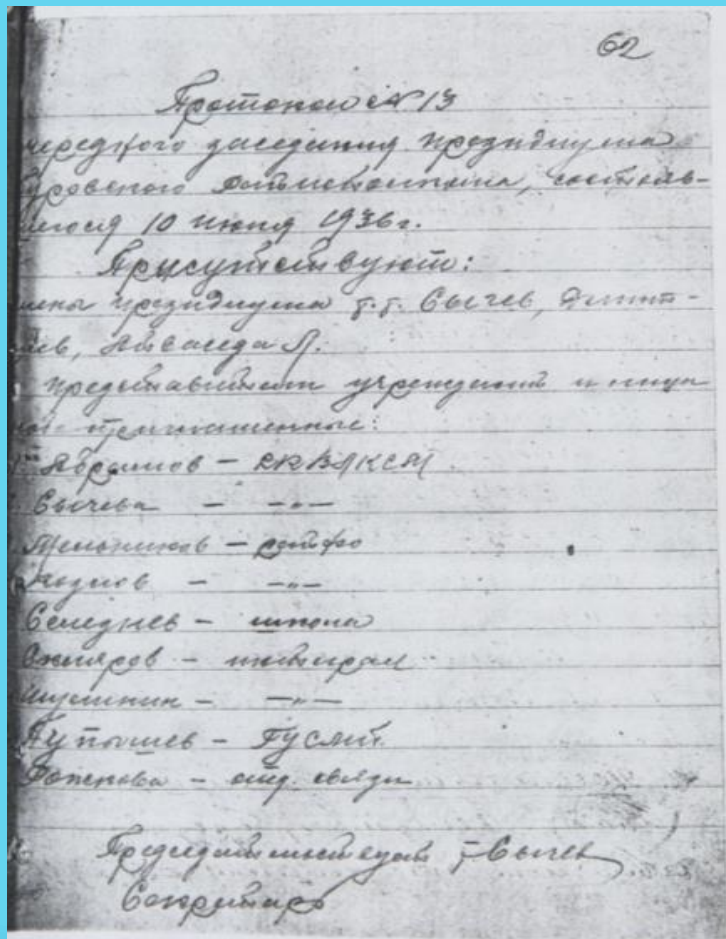 62
Протокол № 13
чередного заседания президиума
уровского райисполкома, состояв-
шегося 10 июня 1936 г.
Присутствуют:
члены президиума т.т. Сычев,
Айваседа Л.
представители учреждений и лица
приглашенные:
Абрамов – РКВЛКСМ
Сычева – –„–
Мельников – райфо
Козлов – –„–
Селеднев – школа
Скляров – интеграл
– –„–
Пупышев –
Боженова – отд. связи
Председательствует т. Сычев
Секретарь